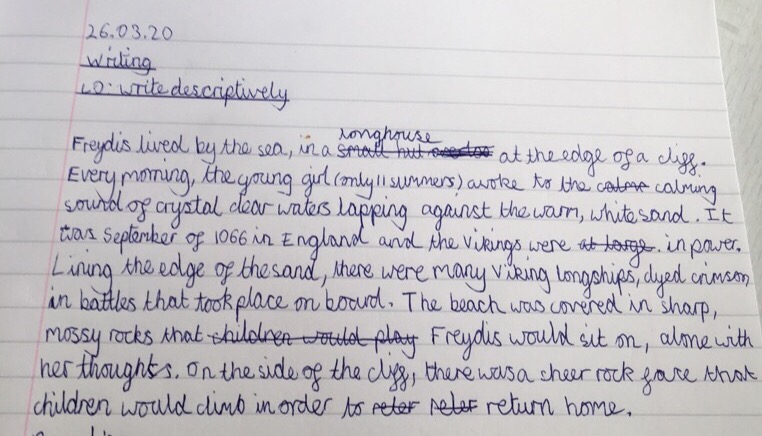 26.03.20
Writing
LO: write descriptively
longhouse
Freydis lived by the sea, in a small hut at the edge of a cliff.
Every morning, the young girl (only 11 summers) awoke to the calming
sound of crystal clear waters lapping against the warm, white sand. It
was September of 1066 in England and the Vikings were at large. in power.
Lining the edge of the sand, there were many Viking longships, dyed crimson
in battles that took place on board. The beach was covered in sharp,
mossy rocks that children would play Freydis would sit on, alone with
her thoughts. On the side of the cliff, there was a sheer rock face that
children would climb in order to return home.